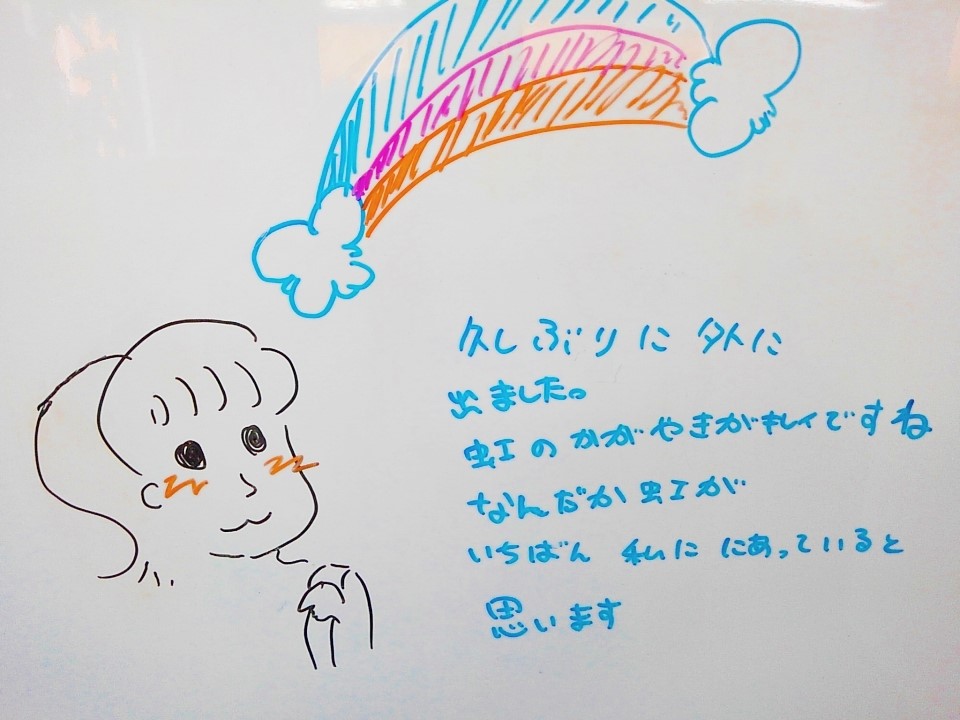 久しぶりに外に
出ました。
虹のかがやきがキレイですね
なんだか虹が
いちばん 私に にあっていると
思います